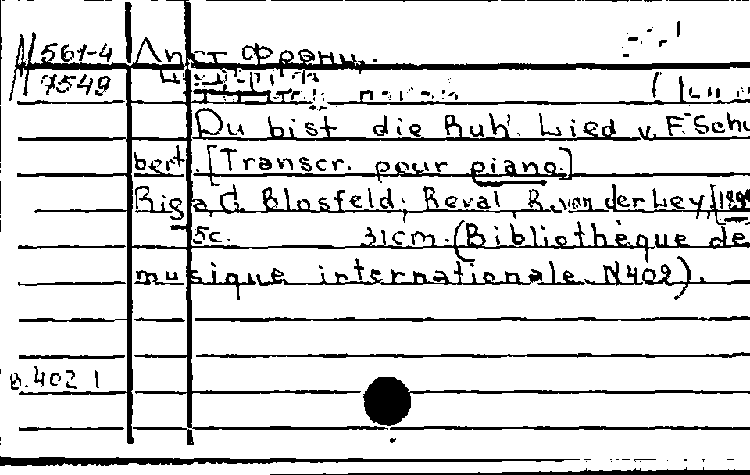 М 561-4 Лист Франц.
М 7549
Du bist die Ruh'. Lied v. F. Schu
bert. [Transcr. pour piano.]
Riga, C. Blosfeld; Reval, R. von der Ley, [18
5с. 31cm. (Bibliothèque de
musique internationale. N402).
в. 402 1